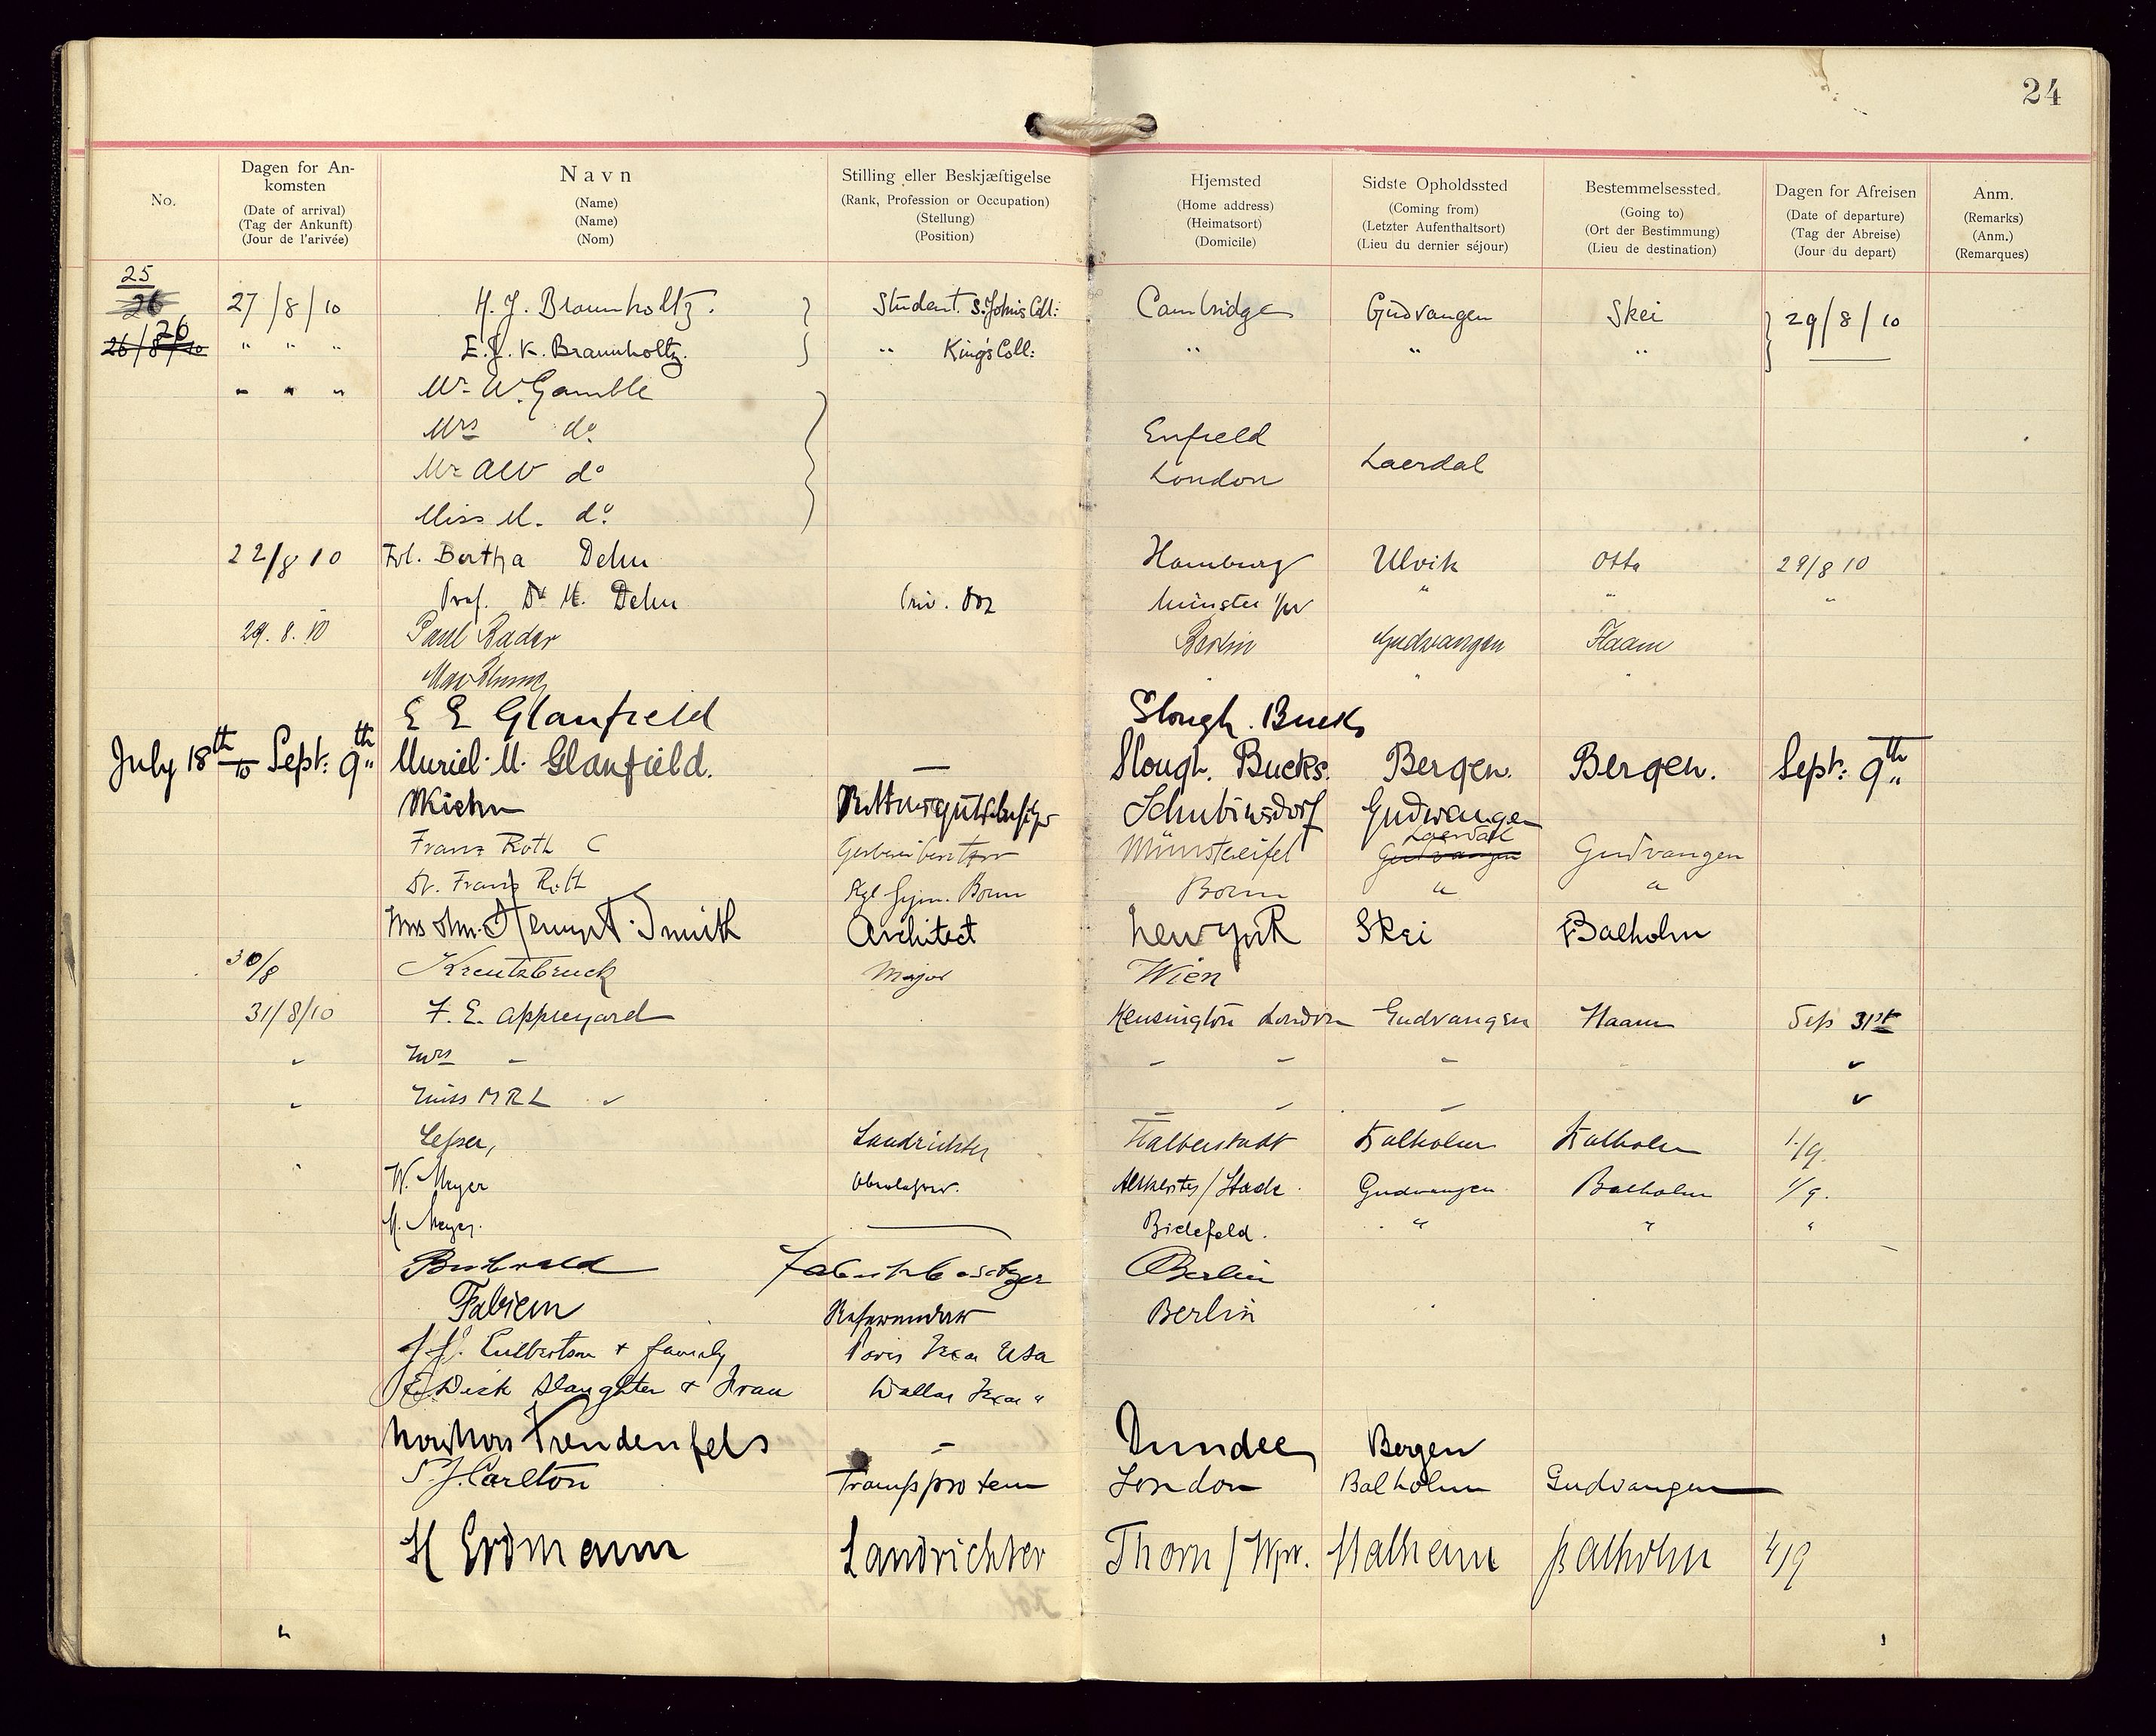 24
No. Dagen for An-komsten Navn Stilling eller Beskjæftigelse Hjemsted Sidste Opholdssted Bestemmelsessted. Dagen for Afreisen Anm.
(Date of arrival) (Name) (Rank, Profession or Occupation) (Home address) (Coming from) (Going to) (Date of departure) (Remarks)
(Tag der Ankunft) (Name) (Stellung) (Heimatsort) (Letzter Aufenthaltsort) (Ort der Bestimmung) (Tag der Abreise) (Anm.)
(Jour de l'arivée) (Nom) (Position) (Domicile) (Lieu du dernier séjour) (Lieu de destination) (Jour du depart) (Remarques)
25
26 27/8/10 H. J. Braunholtz. Student. S. John's Coll: Cambridge Gudvangen Skei 29/8/10
26
26/8/10 " " " E. J. K. Braunholtz. " King's Coll: " " "
" " " Mr W. Gamble
Mrs do Enfield
Mr do London Laerdal
Miss M. do
22/8 10 Frl. Bertha Dehn Hamburg Ulvik Otta 29/8 10
Prof. Dr H. Dehn Priv. Doz Münster i/W " " "
29. 8. 10 Paul Rader Berlin Gudvangen Flaam
Max " "
E E Glanfield Slough. Bucks
July 18th to Sept: 9th Muriel. M. Glanfield. — Slough. Bucks. Bergen. Bergen. Sept: 9th
Rittergutsbesitzer Schubinsdorf Gudwangen
Laerdal
Franz Roth Gerbereibesitzer Münstereifel Gudvangen Gudvangen
Dr. Franz Roth Kgl Gym. Bonn Bonn " "
Smith Architect New York Skei Balholm
30/8 Kreutzbruck Major Wien
31/8/10 F. E. Appleyard Kensington London Gudvangen Flaam Sep 31st
" Mrs " " " "
" Miss M R L " " " " "
Lesser, Landrichter Halberstadt Balholm Balholm 1./9.
W. Meyer Oberlehrer. Gudvangen Balholm 1/9.
H. Meyer. — Bielefeld. " " "
Fabrikbesitzer Berlin
Fabiem Referendar Berlin
J. J. Culbertson + family Paris Texas USA
E Dick Slaughter + Frau Dallas Texas "
Trendenfels — Dundee Bergen
S. J. Carlton Tramp pro tem London Balholm Gudvangen
H Erdmann Landrichter Thorn / Wpr. Stalheim Balholm 4/9